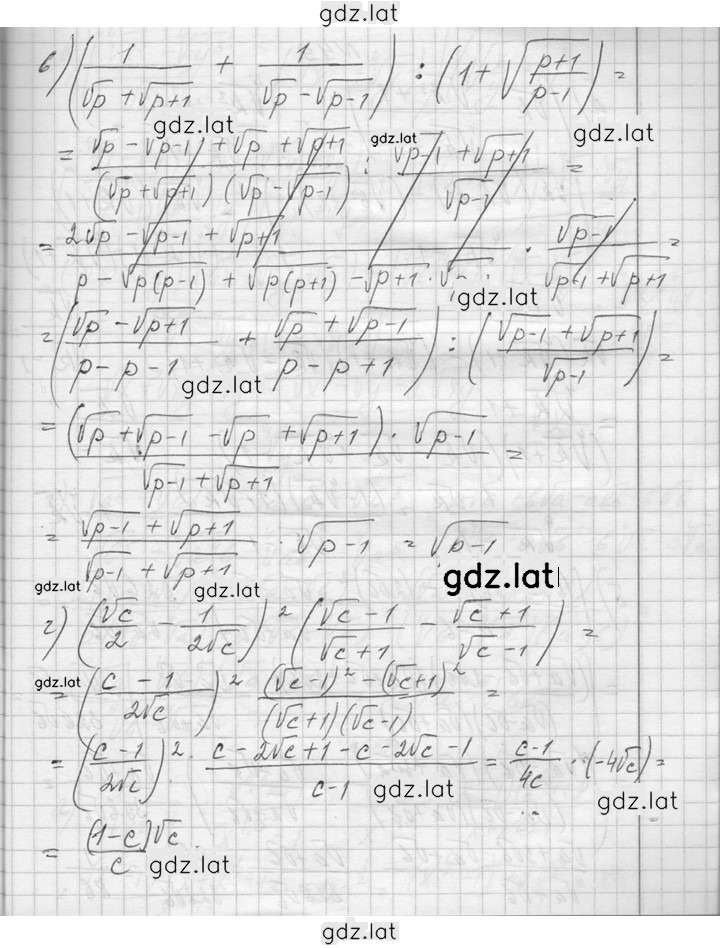 gdz.lat
б) (1/(√p + √(p+1)) + 1/(√p − √(p−1))) : (1 + √((p+1)/(p−1))) =
gdz.lat gdz.lat gdz.lat
= (√p − √(p−1) + √p + √(p+1))/((√p + √(p+1))(√p − √(p−1))) : (√(p−1) + √(p+1))/√(p−1) =
= (2√p − √(p−1) + √(p+1))/(p − √(p(p−1)) + √(p(p+1)) − √(p+1) · √ · √(p−1)/(√(p−1) + √(p+1)) =
gdz.lat
= ((√p − √(p+1))/(p − p − 1) + (√p + √(p−1))/(p − p + 1)) : ((√(p−1) + √(p+1))/√(p−1)) =
gdz.lat
= (√p + √(p−1) − √p + √(p+1)) · √(p−1)/(√(p−1) + √(p+1)) =
= (√(p−1) + √(p+1))/(√(p−1) + √(p+1)) · √(p−1) = √(p−1)
gdz.lat gdz.lat
г) (√c/2 − 1/(2√c))² ((√c − 1)/(√c + 1) − (√c + 1)/(√c − 1)) =
gdz.lat
= ((c − 1)/(2√c))² ((√c−1)² − (√c+1)²)/((√c+1)(√c−1)) =
= ((c−1)/(2√c))² · (c − 2√c + 1 − c − 2√c − 1)/(c−1) = (c−1)/(4c) · (−4√c) =
gdz.lat gdz.lat
= (1−c)√c/c
gdz.lat
gdz.lat